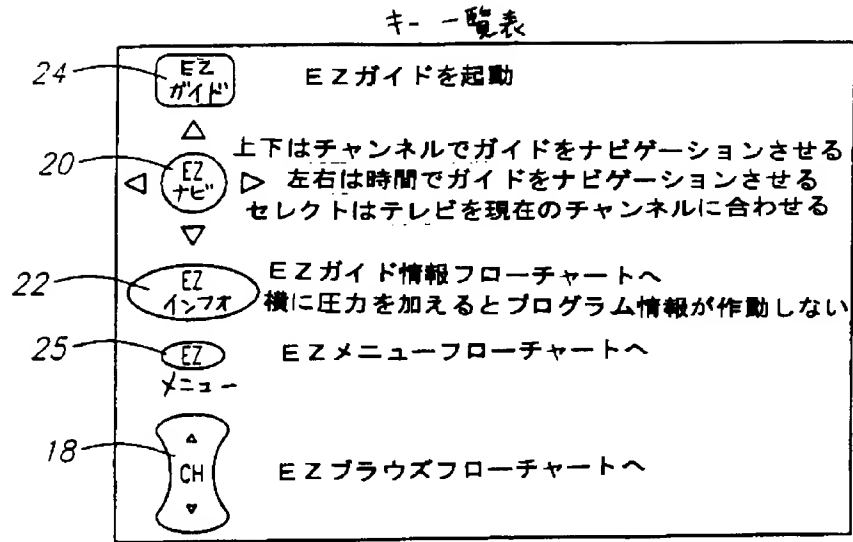 キー一覧表
24
EZ
ガイド
EZガイドを起動
20
EZ
ナビ
上下はチャンネルでガイドをナビゲーションさせる
左右は時間でガイドをナビゲーションさせる
セレクトはテレビを現在のチャンネルに合わせる
22
EZ
インフォ
EZガイド情報フローチャートへ
横に圧力を加えるとプログラム情報が作動しない
25
EZ
メニュー
EZメニューフローチャートへ
18
CH
EZブラウズフローチャートへ